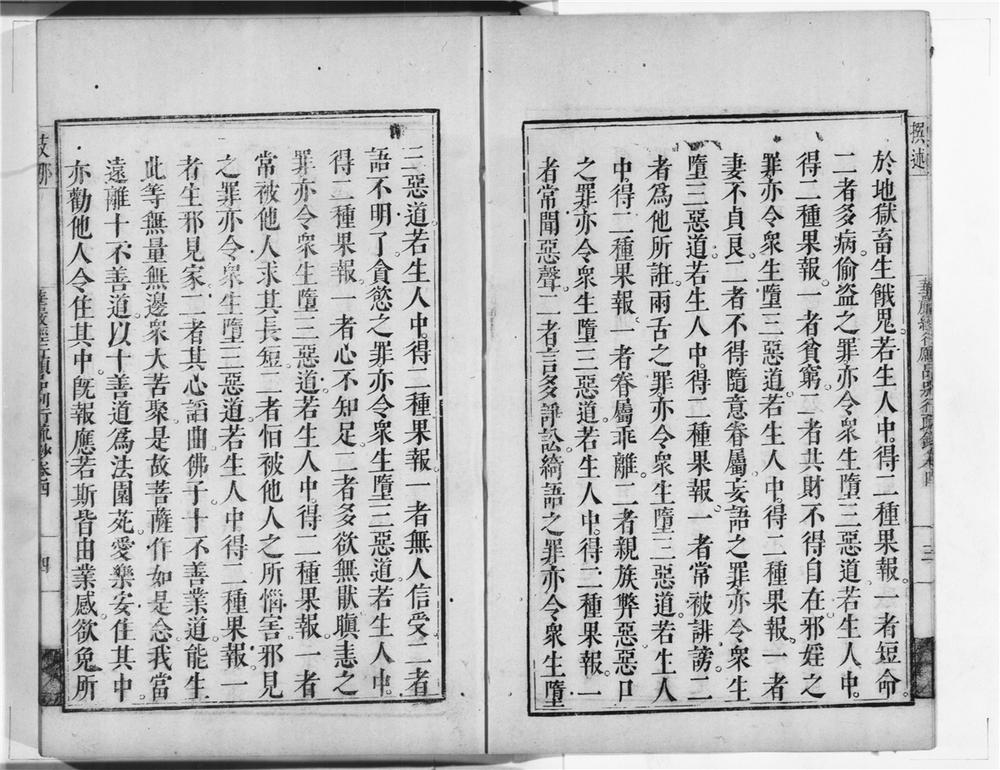 撰述
於地獄畜生餓鬼若生人中。得二種果報。一者短命。
二者多病。偷盜之罪亦令衆生墮三惡道若生人中。
得二種果報。一者貧窮。二者共財不得自在邪婬之
罪亦令衆生墮三惡道。若生人中。得二種果報。一者
妻不貞良。二者不得隨意眷屬。妄語之罪亦令衆生
墮三惡道。若生人中。得二種果報。一者常被誹謗二
者為他所誑兩舌之罪亦令衆生墮三惡道。若生人
中。得二種果報。一者眷屬乖離。二者親族弊惡。惡口
之罪。亦令衆生墮三惡道。若生人中。得二種果報。一
者常聞惡聲。二者言多諍訟。綺語之罪亦令衆生墮
三惡道。若生人中。得二種果報。一者無人信受。二者
語不明了。貪慾之罪亦令衆生墮三惡道。若生人中。
得二種果報。一者心不知足。二者多欲無猒。瞋恚之
罪亦令衆生墮三惡道。若生人中。得二種果報。一者
常被他人求其長短。二者恒被他人之所惱害。邪見
之罪亦令衆生墮三惡道。若生人中。得二種果報。一
者生邪見家。二者其心謟曲。佛子。十不善業道。能生
此等無量無邊衆大苦聚。是故菩薩作如是念我當
遠離十不善道。以十善道為法園苑。愛樂安住。其中
亦勸他人。令住其中。旣報應若斯。皆由業感。欲免所